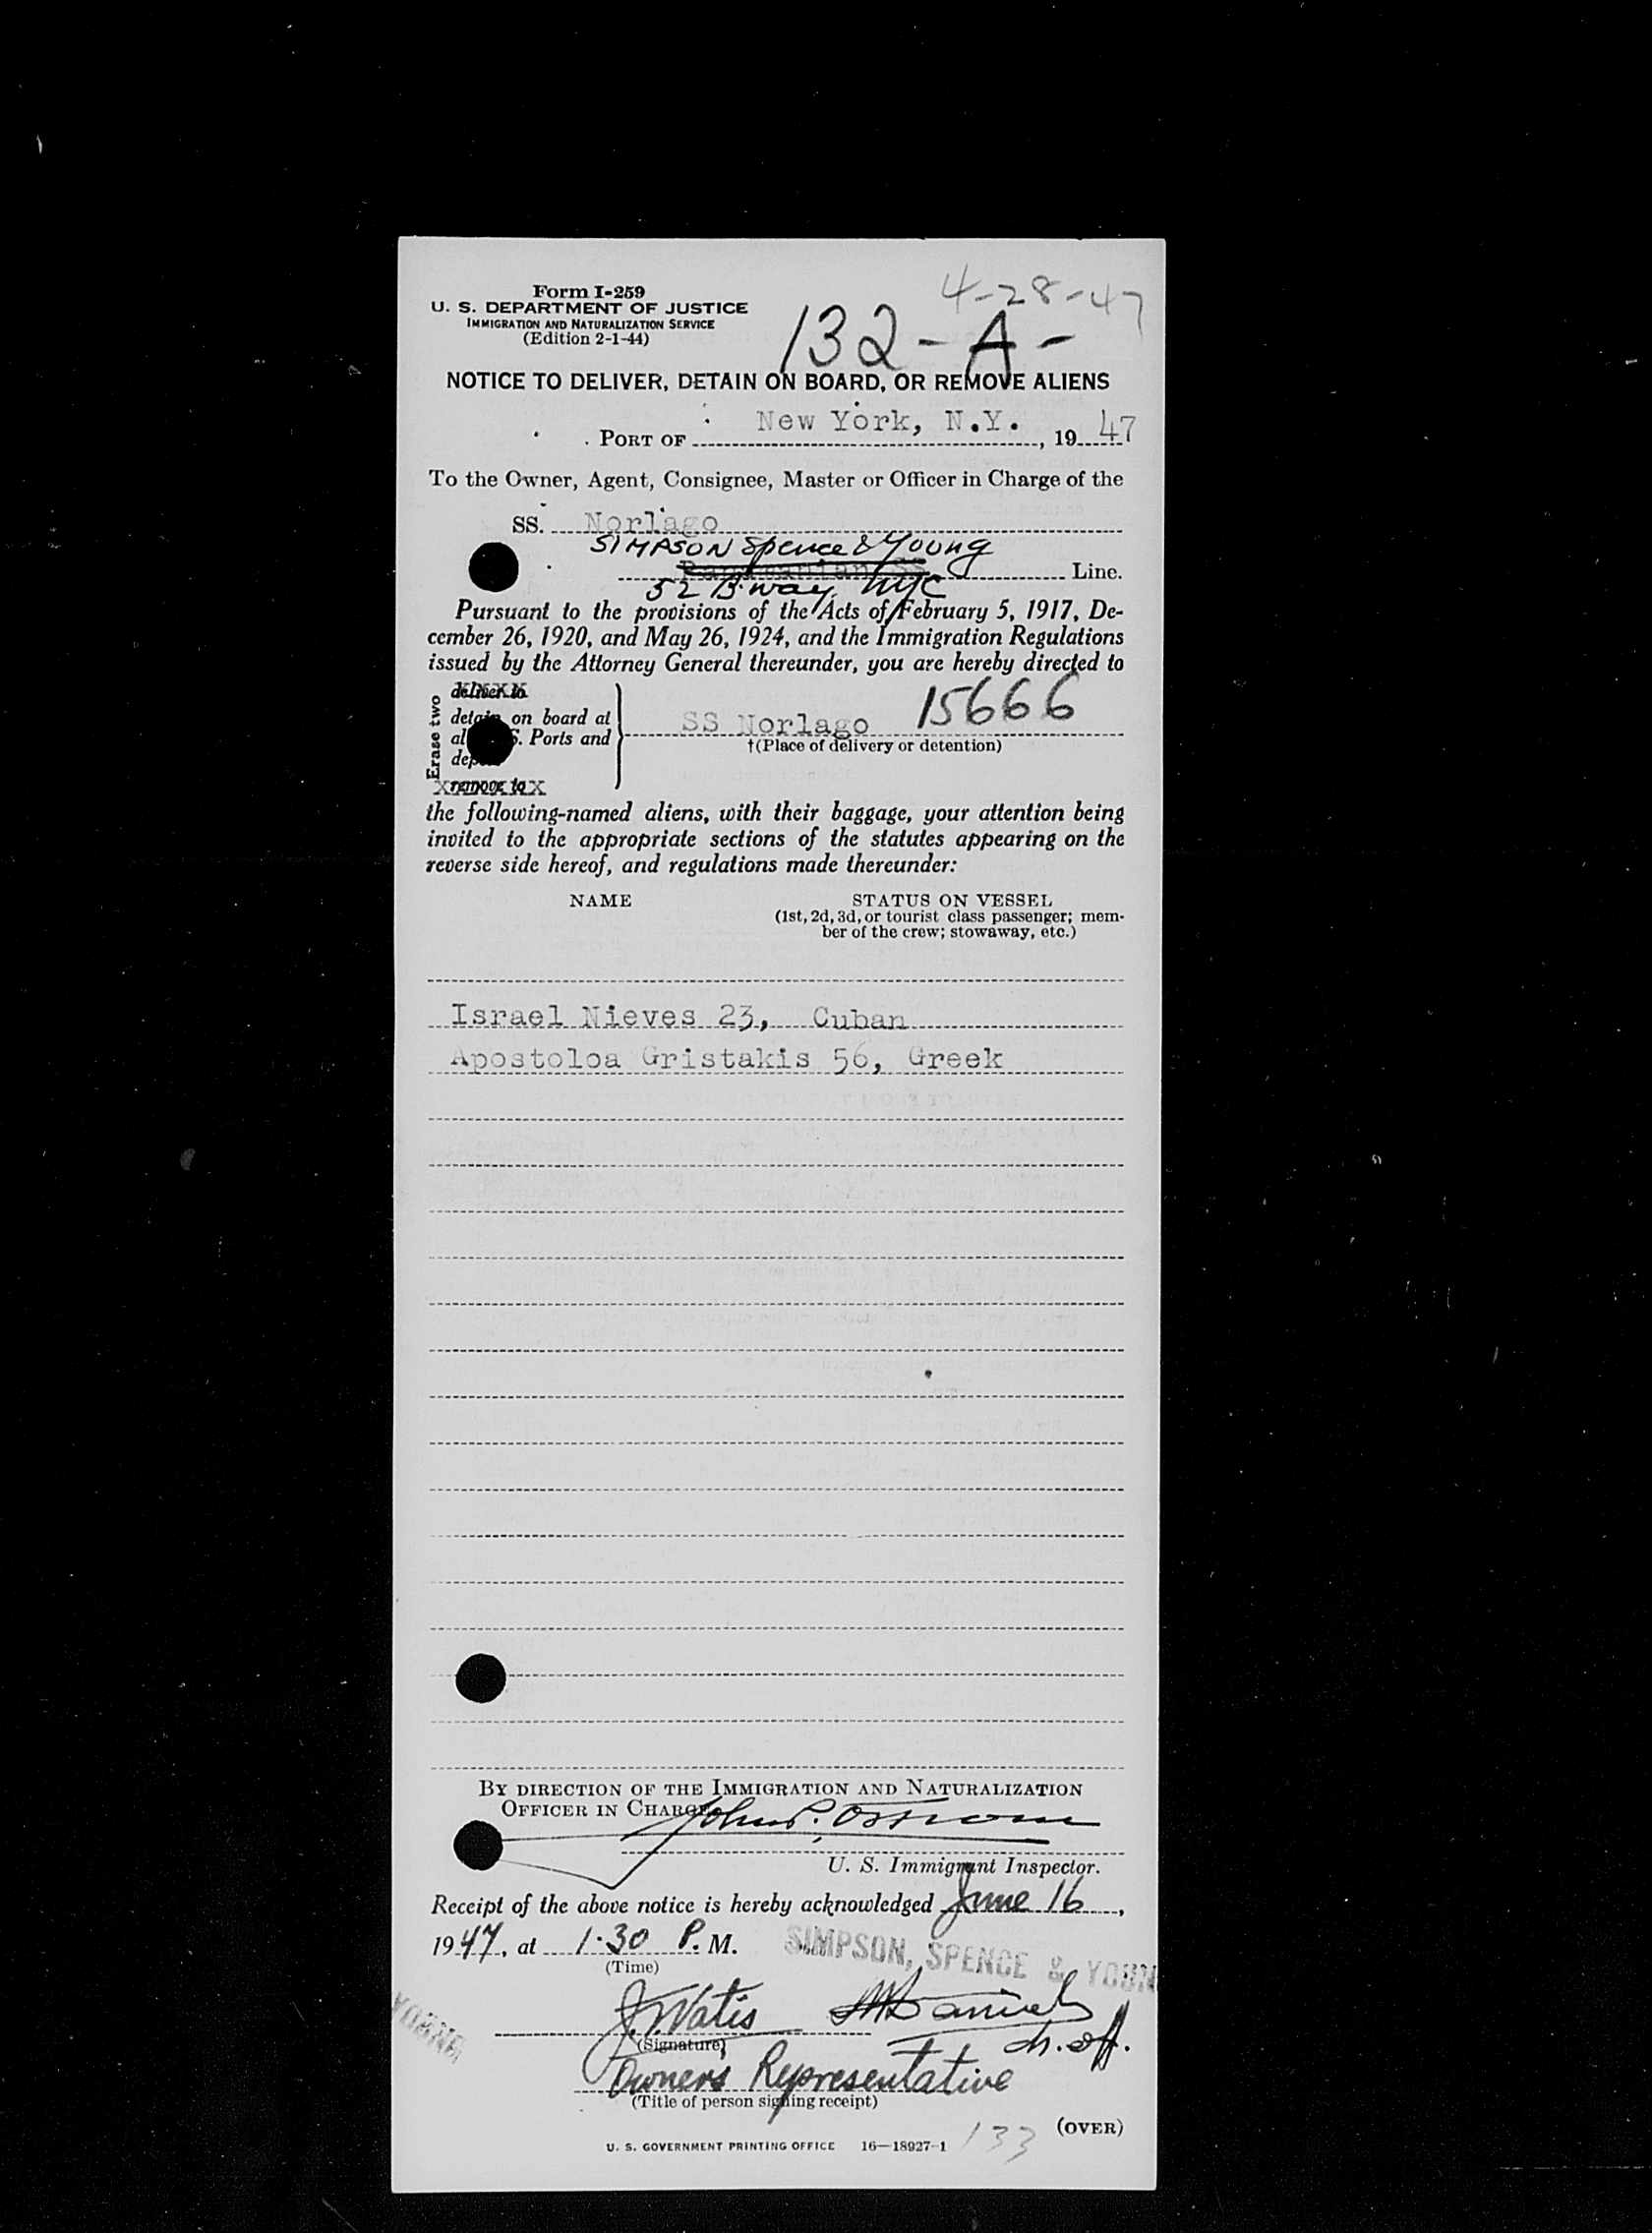 Form I-259
4-28-47
U. S. DEPARTMENT OF JUSTICE
IMMIGRATION AND NATURALIZATION SERVICE
(Edition 2-1-44)
132-A-
NOTICE TO DELIVER, DETAIN ON BOARD, OR REMOVE ALIENS
PORT OF New York, N.Y. , 19 47
To the Owner, Agent, Consignee, Master or Officer in Charge of the
SS. Norlago
SIMPSON Spence & Young
Line.
52 B'way, NYC
Pursuant to the provisions of the Acts of February 5, 1917, De-
cember 26, 1920, and May 26, 1924, and the Immigration Regulations
issued by the Attorney General thereunder, you are hereby directed to
Erase two
deliver to
detain on board at
al S. Ports and
dep
remove to
SS Norlago 15666
†(Place of delivery or detention)
the following-named aliens, with their baggage, your attention being
invited to the appropriate sections of the statutes appearing on the
reverse side hereof, and regulations made thereunder:
NAME STATUS ON VESSEL
(1st, 2d, 3d, or tourist class passenger; mem-
ber of the crew; stowaway, etc.)
Israel Nieves 23, Cuban
Apostoloa Gristakis 56, Greek
BY DIRECTION OF THE IMMIGRATION AND NATURALIZATION
OFFICER IN CHARGE
John P.
U. S. Immigrant Inspector.
Receipt of the above notice is hereby acknowledged June 16 ,
19 47, at 1·30 P. M.
(Time)
SIMPSON, SPENCE & YOUN
YOUNG
(Signature)
Ch. off.
Owners Representative
(Title of person signing receipt)
(OVER)
133
U. S. GOVERNMENT PRINTING OFFICE 16—18927-1